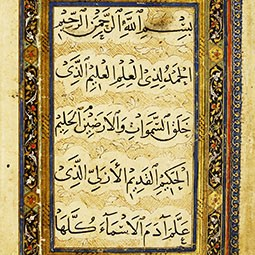 بِسْمِ اللهِ الرَّحْمٰنِ الرَّحِيمِ
الْحَمْدُ لِلّٰهِ الْعَلِيمِ الَّذِي
خَلَقَ السَّمٰوَاتِ وَالْأَرَضِينَ الْحَلِيمِ
الْحَكِيمِ الْقَدِيمِ الْأَزَلِيِّ الَّذِي
عَلَّمَ آدَمَ الْأَسْمَاءَ كُلَّهَا